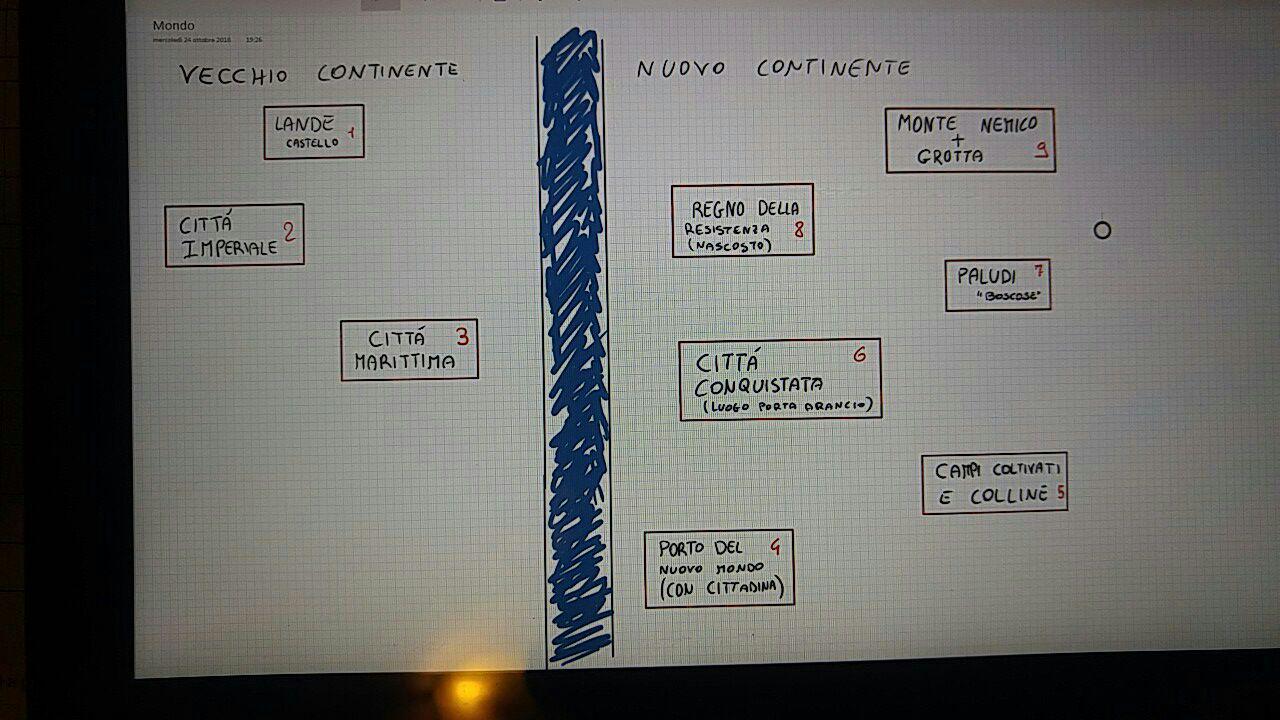 Mondo
mercoledì 24 ottobre 2018 19:26
VECCHIO CONTINENTE
NUOVO CONTINENTE
LANDE 1
CASTELLO
CITTÁ 2
IMPERIALE
CITTÁ 3
MARITTIMA
MONTE NEMICO
+
GROTTA 9
REGNO DELLA
RESISTENZA 8
(NASCOSTO)
PALUDI 7
"BOSCOSE"
CITTÁ 6
CONQUISTATA
(LUOGO PORTA ARANCIO)
CAMPI COLTIVATI
E COLLINE 5
PORTO DEL 4
NUOVO MONDO
(CON CITTADINA)